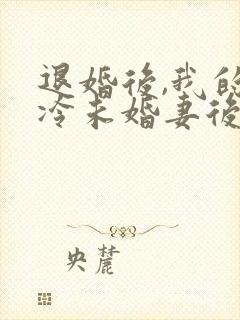 退婚後,我的
冷未婚妻後
央麓